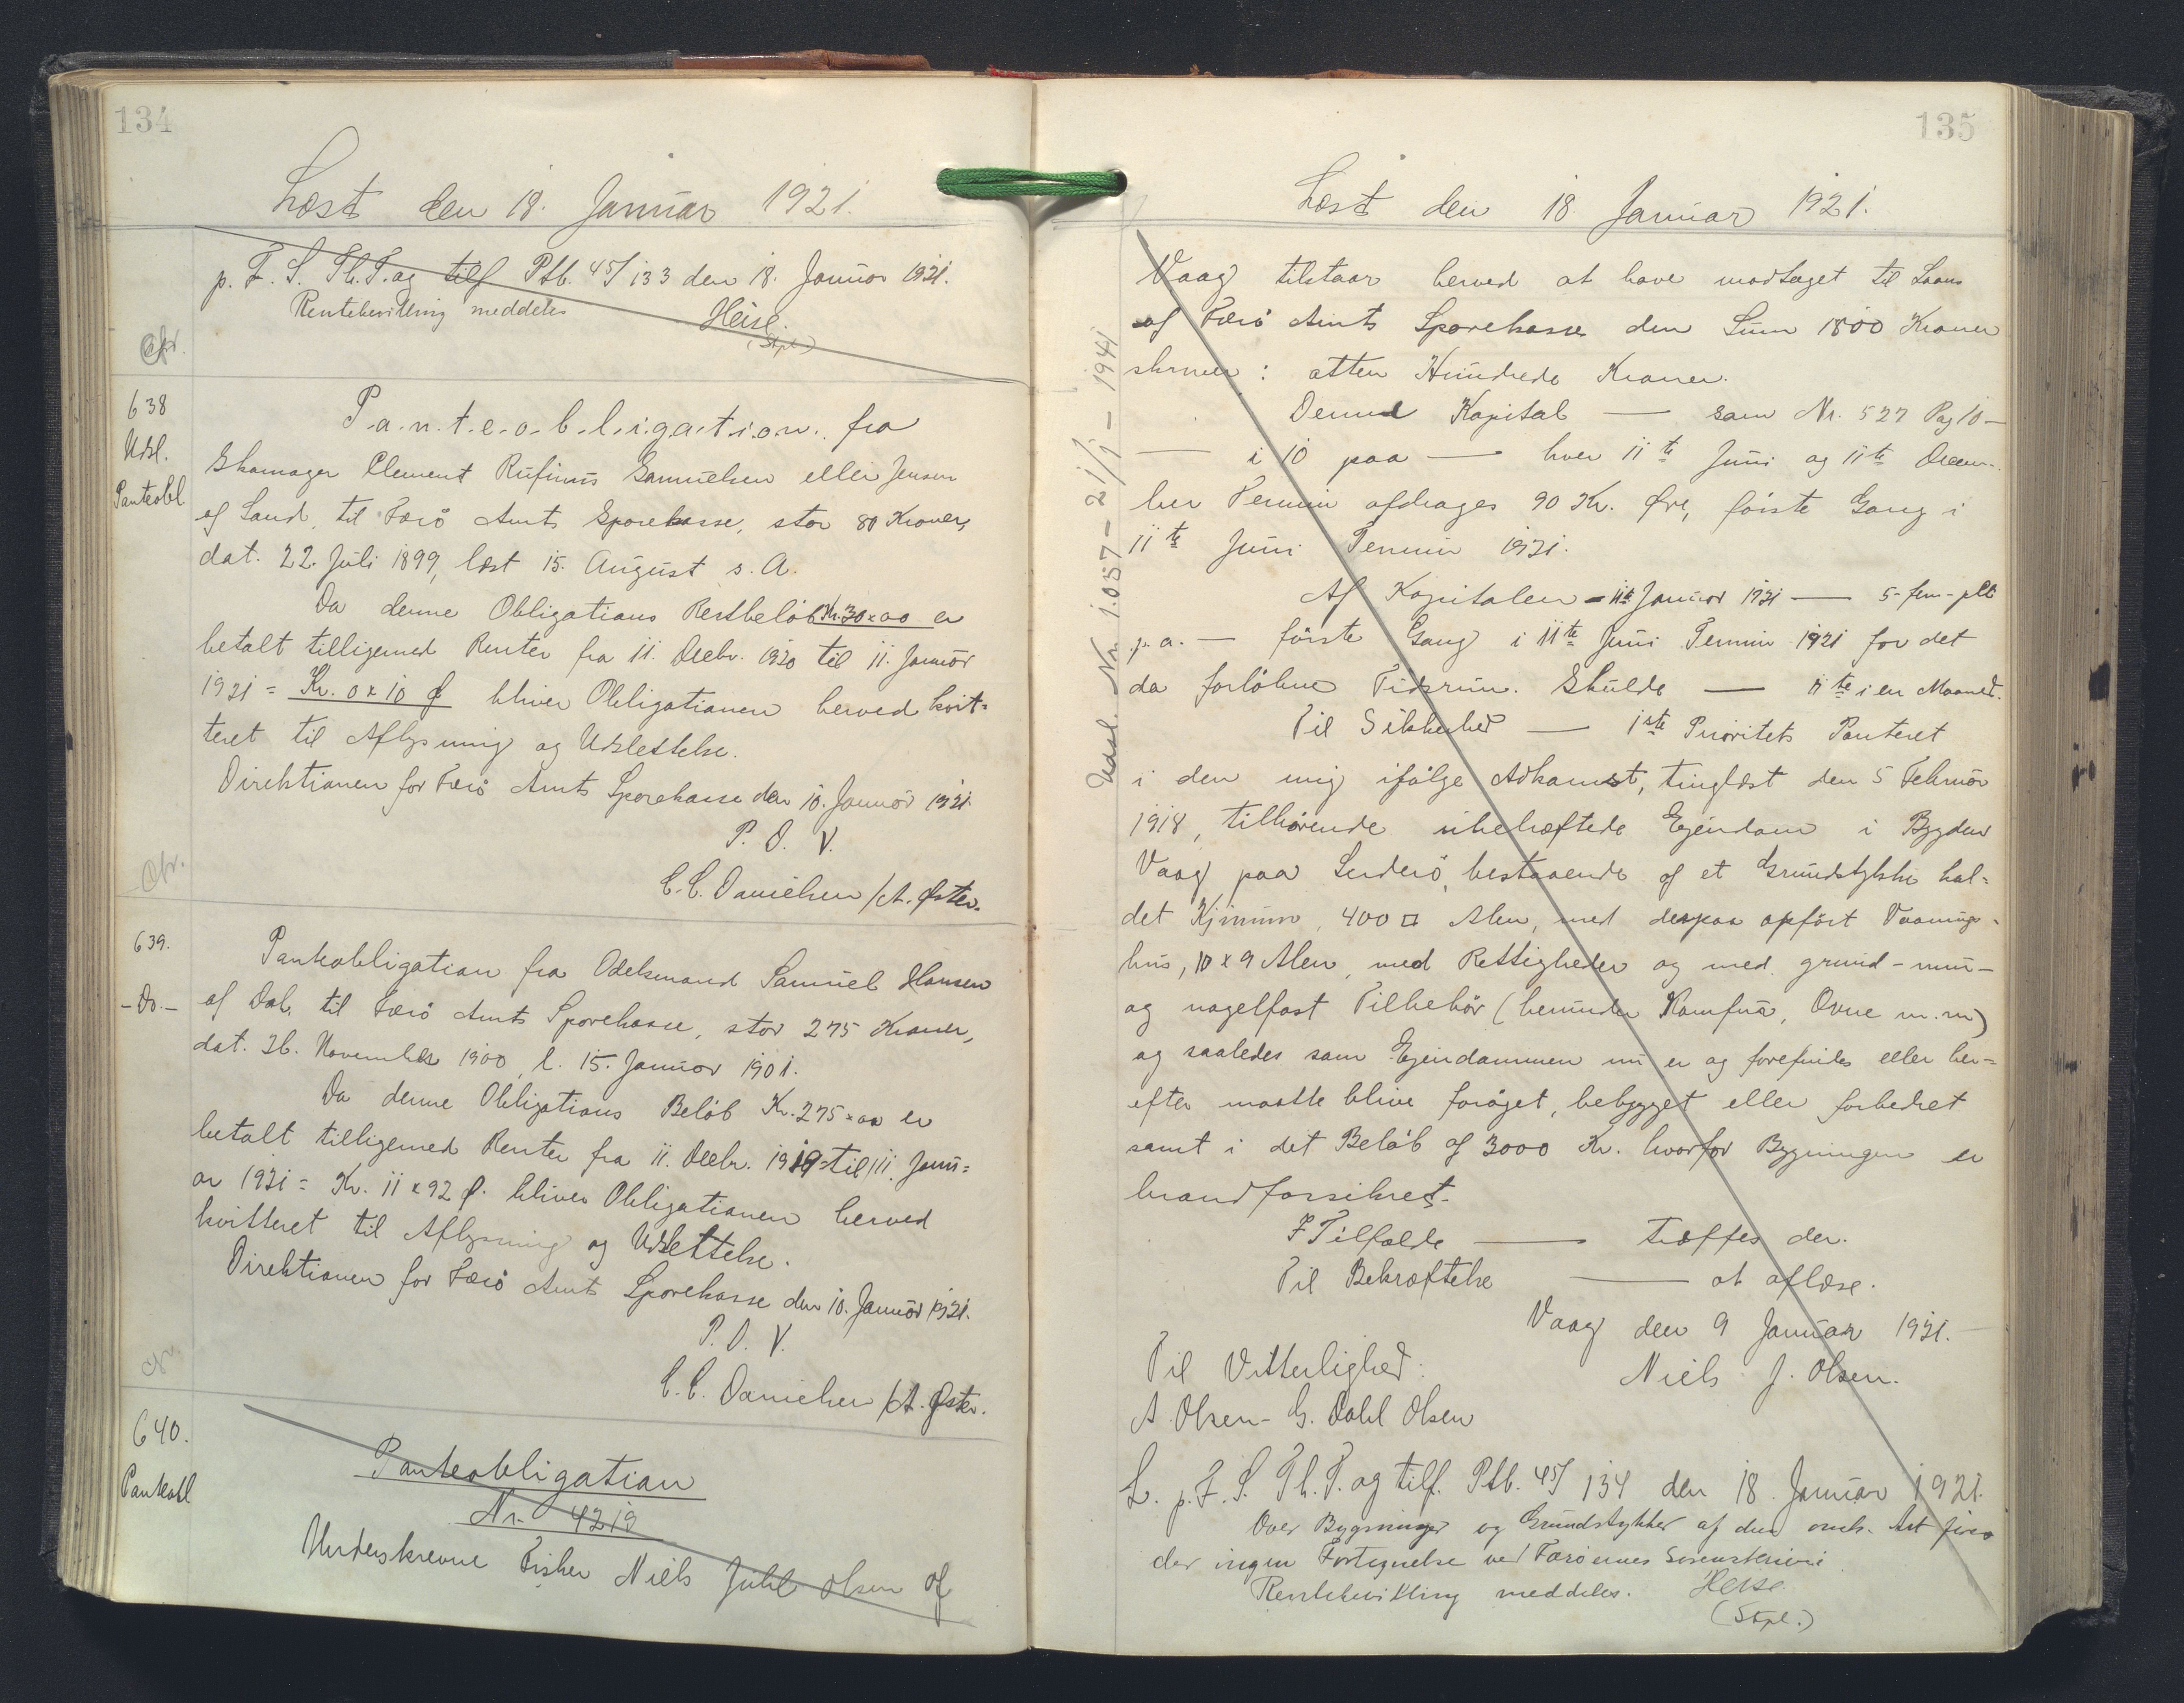 134
Læst den 18. Januar 1921.
p. F. S. Th. T. og tilf Ptb. 45/133 den 18. Januar 1921.
Rentebevilling meddeles
Heise.
(Stpl.)
Cfr.
638
Udsl.
Panteobl
P.a.n.t.e.o.b.l.i.g.a.t.i.o.n. fra
Skomager Clement Rufinus Samuelsen eller Jensen
af Sand, til Færö Amts Sparekasse, stor 80 Kroner,
dat. 22. Juli 1899, læst 15. August s. A.
Da denne Obligations Restbeløb Kr. 30 x 00 er
betalt tilligemed Renter fra 11. Decbr. 1920 til 11. Januar
1921 = Kr. 0 x 10 Ø bliver Obligationen herved kvit-
teret til Aflysning og Udslettelse.
Direktionen for Færö Amts Sparekasse den 10. Januar 1921.
P. D. V.
C. C. Danielsen /A. Øster.
Cfr.
639.
-Do.-
Panteobligation fra Odelsmand Samuel Hansen
af Dal, til Færö Amts Sparekasse, stor 275 Kroner,
dat. 26. November 1900, l. 15. Januar 1901.
Da denne Obligations Beløb Kr. 275 x 00 er
betalt tilligemed Renter fra 11. Decbr. 1919 = til 11. Janu-
ar 1921 = Kr. 11 x 92 Ø. bliver Obligationen herved
kvitteret til Aflysning og Udslettelse.
Direktionen for Færö Amts Sparekasse den 10. Januar 1921.
P. D. V.
C. C. Danielsen /A. Øster.
640.
Panteobl
Panteobligation
Nr. 4219
Underskrevne Fisker Niels Juhl Olsen af
135
Læst den 18 Januar 1921.
Udsl. Nr. 1.057 - 21/1 - 1941
Vaag tilstaar herved at have modtaget til Laans
af Færö Amts Sparekasse den Sum 1800 Kroner
skriver: atten Hundrede Kroner.
Denne Kapital — som Nr. 527 Pag 10 —
— i 10 paa — hver 11te Juni og 11te Decem-
ber Termin afdrages 90 Kr. Øre, første Gang i
11te Juni Termin 1921.
Af Kapitalen - 11te Januar 1921 — 5-fem-pCt
p. a. — første Gang i 11te Juni Termin 1921 for det
da forløbne Tidsrum. Skulde — 11te i en Maaned.
Til Sikkerhed — 1ste Prioritets Panteret
i den mig ifølge Adkomst, tinglæst den 5 Februar
1918, tilhørende ubehæftede Ejendom i Bygden
Vaag paa Suderö, bestaaende af et Grundstykke kal-
det Kjinum, 400 □ Alen, med derpaa opført Vaanings-
hus, 10 x 9 Alen, med Rettigheder og med grund- mur-
og nagelfast Tilbehör (herunder Komfur, Ovne m. m)
og saaledes som Ejendommen nu er og forefindes eller her-
efter maatte blive forøget, bebygget eller forbedret
samt i det Beløb af 3000 Kr. hvorfor Bygningen er
brandforsikret.
I Tilfælde — træffes der.
Til Bekræftelse — at aflæse.
Vaag den 9 Januar 1921.
Til Vitterlighed: Niels J. Olsen.
A. Olsen - G. Dahl Olsen
L. p. F. S. Th. T. og tilf. Ptb. 45/134 den 18. Januar 1921.
Over Bygninger og Grundstykker af den omh. Art føres
der ingen Fortegnelse ved Færøernes Sorenskriveri
Rentebevilling meddeles. Heise.
(Stpl.)